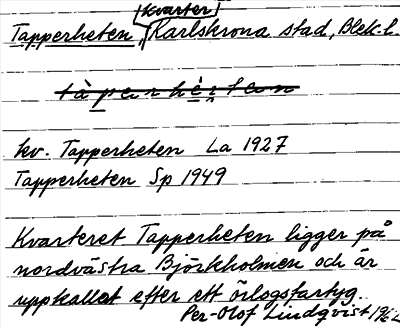 kvarter
Tapperheten, Karlskrona stad, Blek. l.
tàpərhè́tən
kv. Tapperheten La 1927
Tapperheten Sp 1949
Kvarteret Tapperheten ligger på
nordvästra Björkholmen och är
uppkallat efter ett örlogsfartyg.
Per-Olof Lindqvist